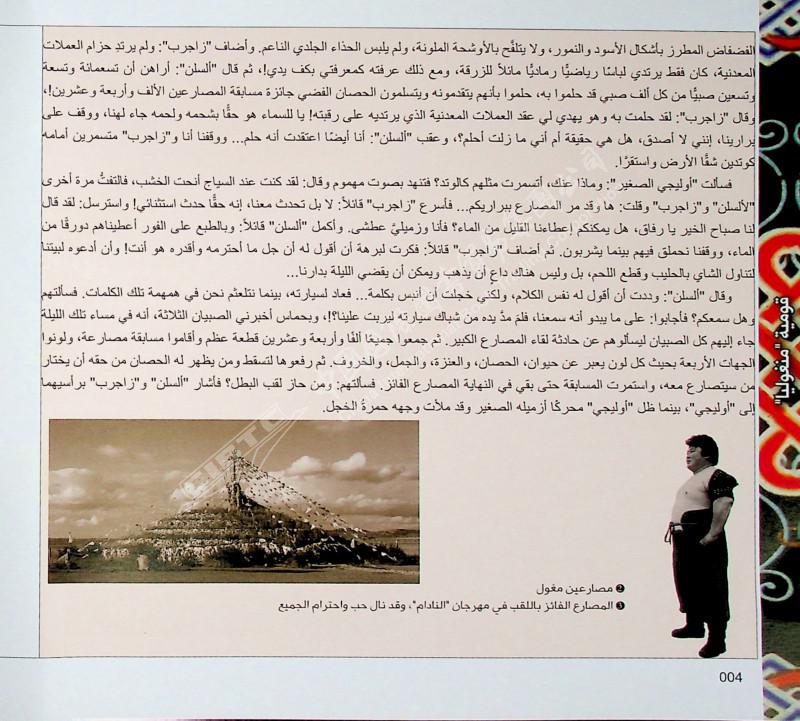 الفضفاض المطرز بأشكال الأسود والنمور، ولا يتلفَّح بالأوشحة الملونة، ولم يلبس الحذاء الجلدي الناعم. وأضاف "زاجرب": ولم يرتدِ حزام العملات
المعدنية، كان فقط يرتدي لباسًا رياضيًّا رماديًّا مائلاً للزرقة، ومع ذلك عرفته كمعرفتي بكف يدي!، ثم قال "ألسلن": أراهن أن تسعمائة وتسعة
وتسعين صبيًّا من كل ألف صبي قد حلموا به، حلموا بأنهم يتقدمونه ويتسلمون الحصان الفضي جائزة مسابقة المصارعين الألف وأربعة وعشرين!،
وقال "زاجرب": لقد حلمت به وهو يهدي لي عقد العملات المعدنية الذي يرتديه على رقبته! يا للسماء هو حقًّا بشحمه ولحمه جاء لهنا، ووقف على
برارينا، إنني لا أصدق، هل هي حقيقة أم أني ما زلت أحلم؟، وعقب "ألسلن": أنا أيضًا اعتقدت أنه حلم... ووقفنا أنا و"زاجرب" متسمرين أمامه
كوتدين شقًّا الأرض واستقرَّا.
فسألت "أوليجي الصغير": وماذا عنك، أتسمرت مثلهم كالوتد؟ فتنهد بصوت مهموم وقال: لقد كنت عند السياج أنحت الخشب، فالتفتُّ مرة أخرى
"لألسلن" و"زاجرب" وقلت: ها وقد مر المصارع ببراريكم... فأسرع "زاجرب" قائلاً: لا بل تحدث معنا، إنه حقًّا حدث استثنائي! واسترسل: لقد قال
لنا صباح الخير يا رفاق، هل يمكنكم إعطاءنا القليل من الماء؟ فأنا وزميليَّ عطشى. وأكمل "ألسلن" قائلاً: وبالطبع على الفور أعطيناهم دورقًا من
الماء، ووقفنا نحملق فيهم بينما يشربون. ثم أضاف "زاجرب" قائلاً: فكرت لبرهة أن أقول له أن جل ما أحترمه وأقدره هو أنت! وأن أدعوه لبيتنا
لتناول الشاي بالحليب وقطع اللحم، بل وليس هناك داعٍ أن يذهب ويمكن أن يقضي الليلة بدارنا...
وقال "ألسلن": وددت أن أقول له نفس الكلام، ولكني خجلت أن أنبس بكلمة... فعاد لسيارته، بينما نتلعثم نحن في همهمة تلك الكلمات. فسألتهم
وهل سمعكم؟ فأجابوا: على ما يبدو أنه سمعنا، فلمَ مدَّ يده من شباك سيارته ليربت علينا؟!، وبحماس أخبرني الصبيان الثلاثة، أنه في مساء تلك الليلة
جاء إليهم كل الصبيان ليسألوهم عن حادثة لقاء المصارع الكبير. ثم جمعوا جميعًا ألفًا وأربعة وعشرين قطعة عظم وأقاموا مسابقة مصارعة، ولونوا
الجهات الأربعة بحيث كل لون يعبر عن حيوان، الحصان، والعنزة، والجمل، والخروف. ثم رفعوها لتسقط ومن يظهر له الحصان من حقه أن يختار
من سيتصارع معه، واستمرت المسابقة حتى بقي في النهاية المصارع الفائز. فسألتهم: ومن حاز لقب البطل؟ فأشار "ألسلن" و"زاجرب" برأسيهما
إلى "أوليجي"، بينما ظل "أوليجي" محركًا أزميله الصغير وقد ملأت وجهه حمرةُ الخجل.
❷ مصارعين مغول
❸ المصارع الفائز باللقب في مهرجان "النادام"، وقد نال حب واحترام الجميع
004
قومية "منغوليا"
CIPTC